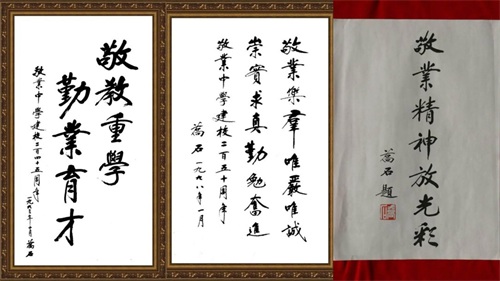 敬教重學
勤業育才
敬業中學建校二百四十五周年
一九九三年十月 蒿石
敬業樂羣唯嚴唯誠
崇實求真勤勉奮進
敬業中學建校二百五十周年
蒿石 一九九八年一月
敬業精神放光彩
蒿石題